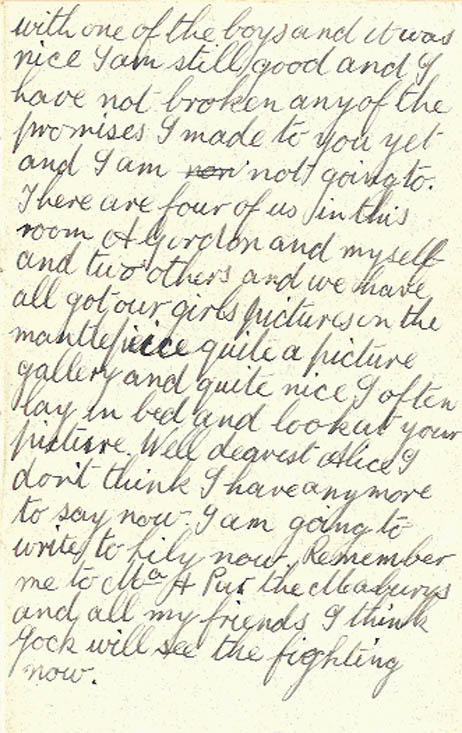 with one of the boys and it was
nice I am still good and I
have not broken any of the
promises I made to you yet
and I am not going to.
There are four of us in this
room A Gordon and myself
and two others and we have
all got our girls pictures on the
mantlepiece quite a picture
gallery and quite nice I often
lay in bed and look at your
picture. Well dearest Alice I
don't think I have any more
to say now. I am going to
write to Lily now. Remember
me to Ma & Pa the
and all my friends I think
Jock will see the fighting
now.